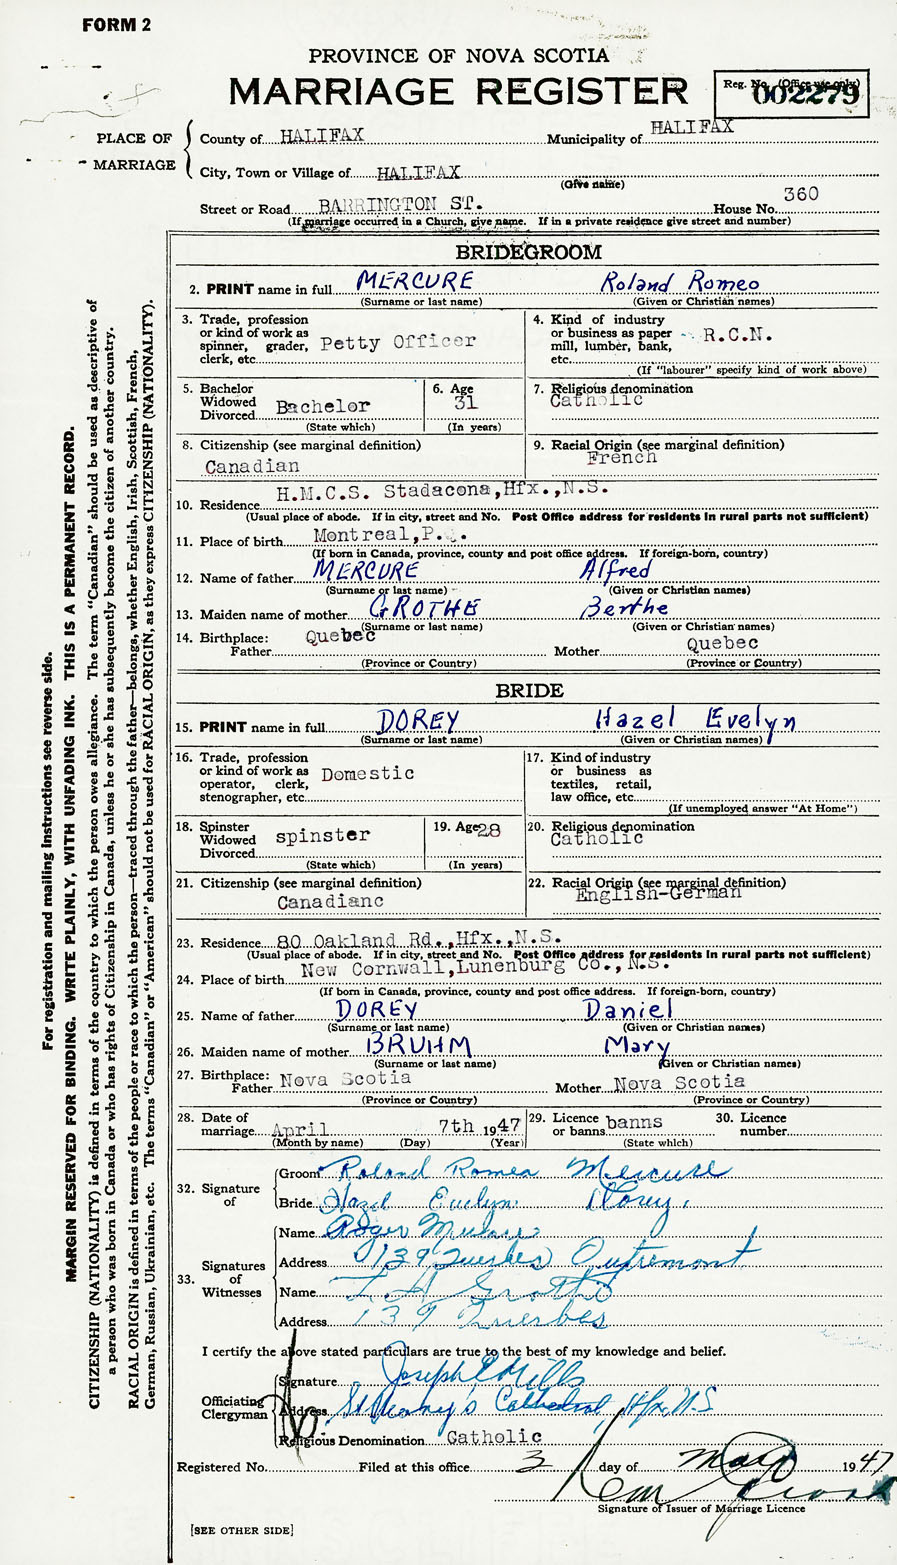 FORM 2
PROVINCE OF NOVA SCOTIA
MARRIAGE REGISTER
Reg. No. (Office use only)
002279
PLACE OF MARRIAGE
County of HALIFAX Municipality of HALIFAX
City, Town or Village of HALIFAX
(Give name)
Street or Road BARRINGTON ST. House No. 360
(If marriage occurred in a Church, give name. If in a private residence give street and number)
BRIDEGROOM
2. PRINT name in full MERCURE Roland Romeo
(Surname or last name) (Given or Christian names)
3. Trade, profession or kind of work as spinner, grader, clerk, etc. Petty Officer
4. Kind of industry or business as paper mill, lumber, bank, etc. R.C.N.
(If "labourer" specify kind of work above)
5. Bachelor Widowed Divorced Bachelor
(State which)
6. Age 31
(In years)
7. Religious denomination
Catholic
8. Citizenship (see marginal definition)
Canadian
9. Racial Origin (see marginal definition)
French
10. Residence H.M.C.S. Stadacona,Hfx.,N.S.
(Usual place of abode. If in city, street and No. Post Office address for residents in rural parts not sufficient)
11. Place of birth Montreal,P. .
(If born in Canada, province, county and post office address. If foreign-born, country)
12. Name of father MERCURE Alfred
(Surname or last name) (Given or Christian names)
13. Maiden name of mother GROTHE Berthe
(Surname or last name) (Given or Christian names)
14. Birthplace: Father Quebec Mother Quebec
(Province or Country) (Province or Country)
BRIDE
15. PRINT name in full DOREY Hazel Evelyn
(Surname or last name) (Given or Christian names)
16. Trade, profession or kind of work as operator, clerk, stenographer, etc. Domestic
17. Kind of industry or business as textiles, retail, law office, etc.
(If unemployed answer "At Home")
18. Spinster Widowed Divorced spinster
(State which)
19. Age 28
(In years)
20. Religious denomination
Catholic
21. Citizenship (see marginal definition)
Canadianc
22. Racial Origin (see marginal definition)
English-German
23. Residence 80 Oakland Rd.,Hfx.,N.S.
(Usual place of abode. If in city, street and No. Post Office address for residents in rural parts not sufficient)
24. Place of birth New Cornwall,Lunenburg Co.,N.S.
(If born in Canada, province, county and post office address. If foreign-born, country)
25. Name of father DOREY Daniel
(Surname or last name) (Given or Christian names)
26. Maiden name of mother BRUHM Mary
(Surname or last name) (Given or Christian names)
27. Birthplace: Father Nova Scotia Mother Nova Scotia
(Province or Country) (Province or Country)
28. Date of marriage April 7th 1947
(Month by name) (Day) (Year)
29. Licence or banns banns
(State which)
30. Licence number
32. Signature of
Groom Roland Romeo Mercure
Bride Hazel Evelyn Dorey.
33. Signatures of Witnesses
Name Roger Mercure
Address 139 Querbes Outremont
Name L H Grothé
Address 139 Querbes
I certify the above stated particulars are true to the best of my knowledge and belief.
Officiating Clergyman
Signature Joseph E Mills
Address St Mary's Cathedral, Hfx, N.S
Religious Denomination Catholic
Registered No. Filed at this office 3 day of May 1947
Signature of Issuer of Marriage Licence
[SEE OTHER SIDE]
For registration and mailing instructions see reverse side.
MARGIN RESERVED FOR BINDING. WRITE PLAINLY, WITH UNFADING INK. THIS IS A PERMANENT RECORD.
CITIZENSHIP (NATIONALITY) is defined in terms of the country to which the person owes allegiance. The term "Canadian" should be used as descriptive of
a person who was born in Canada or who has rights of Citizenship in Canada, unless he or she has subsequently become the citizen of another country.
RACIAL ORIGIN is defined in terms of the people or race to which the person—traced through the father—belongs, whether English, Irish, Scottish, French,
German, Russian, Ukrainian, etc. The terms "Canadian" or "American" should not be used for RACIAL ORIGIN, as they express CITIZENSHIP (NATIONALITY).